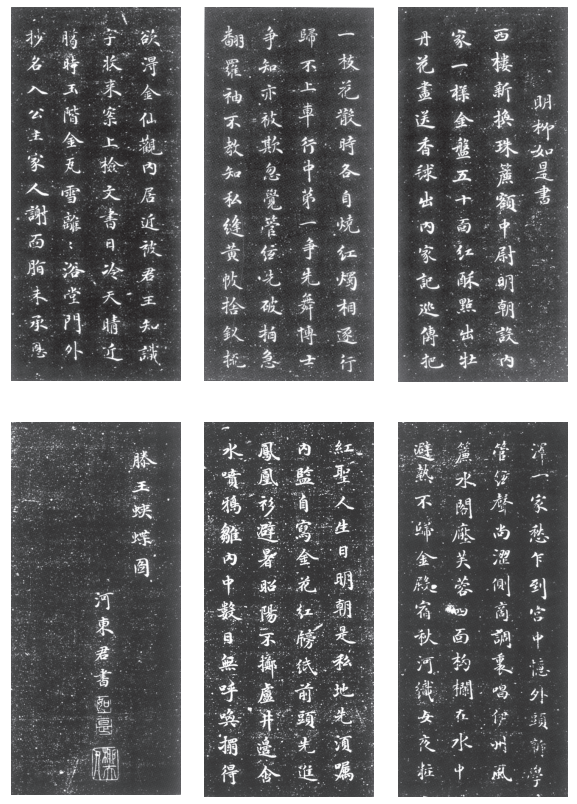 明柳如是書
西樓新換珠簾額中尉明朝設內
家一樣金盤五十面紅酥點出牡
丹花盡送香毬出內家記巡傳把
一枝花散時各自燒紅燭相逐行
歸不上車行中第一爭先舞博士
爭知亦被欺忽覺管絃先破拍急
翻羅袖不教知私縫黃帔捨釵梳
欲得金仙觀內居近被君王知識
字收來案上檢文書日冷天晴近
臘時玉階金瓦雪離〻浴堂門外
抄名入公主家人謝面脂未承恩
澤一家愁乍到宮中憶外頭新學
管絃聲尚澀側商調裏唱伊州風
簾水閣壓芙蓉四面枃欄在水中
避熱不歸金殿宿秋河織女夜粧
紅聖人生日明朝是私地先須囑
內監自寫金花紅牓紙前頭先進
鳳凰衫避暑昭陽不擲盧井邊含
水噴鴉雛內中數日無呼喚搨得
滕王蛺蝶圖
河東君書
如是